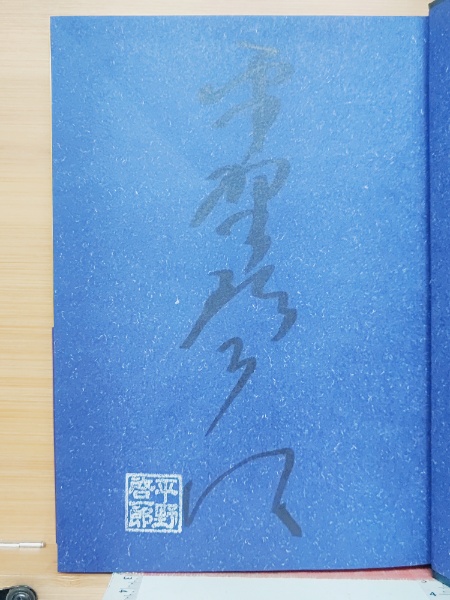 平野啓一郎
平野
啓一郎